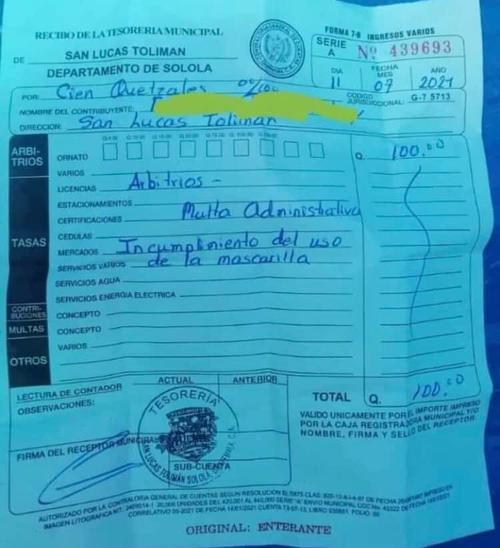 RECIBO DE LA TESORERIA MUNICIPAL
FORMA 7-B INGRESOS VARIOS
DE SAN LUCAS TOLIMAN
SERIE A Nº 439693
DEPARTAMENTO DE SOLOLA
FECHA
DIA MES AÑO
11 07 2021
POR: Cien Quetzales 00/100
CODIGO JURISDICCIONAL: G-7 5713
NOMBRE DEL CONTRIBUYENTE:
DIRECCION: San Lucas Toliman
ARBITRIOS
ORNATO Q. 100.00
VARIOS
LICENCIAS Arbitrios -
ESTACIONAMIENTOS
CERTIFICACIONES Multa Administrativa
TASAS
CEDULAS
MERCADOS Incumplimiento del uso
SERVICIOS VARIOS de la mascarilla
SERVICIOS AGUA
SERVICIOS ENERGIA ELECTRICA
CONTRIBUCIONES CONCEPTO
MULTAS CONCEPTO
OTROS VARIOS
LECTURA DE CONTADOR ACTUAL ANTERIOR
OBSERVACIONES:
TOTAL Q. 100.00
TESORERIA
SAN LUCAS TOLIMAN SOLOLA
VALIDO UNICAMENTE POR EL IMPORTE IMPRESO
POR LA CAJA REGISTRADORA MUNICIPAL Y/O
NOMBRE, FIRMA Y SELLO DEL RECEPTOR.
FIRMA DEL RECEPTOR MUNICIPAL
SUB-CUENTA
AUTORIZADO POR LA CONTRALORIA GENERAL DE CUENTAS SEGUN RESOLUCION
ORIGINAL: ENTERANTE